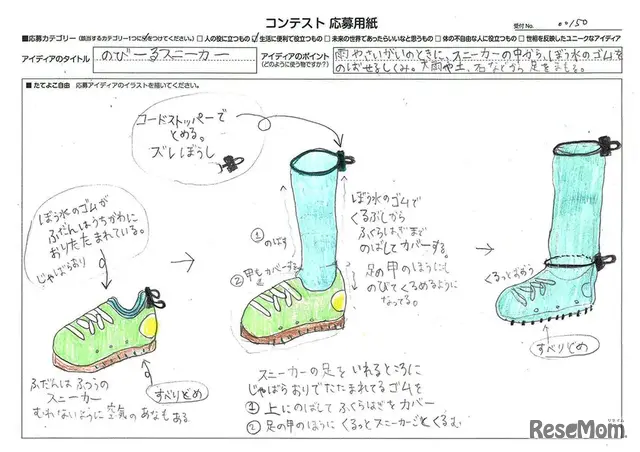 コンテスト 応募用紙
受付No. 00150
■応募カテゴリー（該当するカテゴリー1つに✓をつけてください。）□人の役に立つもの ☑生活に便利で役立つもの □未来の世界であったらいいなと思うもの □体の不自由な方に役立つもの □世相を反映したユニークなアイディア
アイディアのタイトル
のびーるスニーカー
アイディアのポイント
（どのように使う物ですか？）
雨やさいがいのときに、スニーカーの中から、ぼう水のゴムを
のばせるしくみ。大雨や土、石などから足をまもる。
■たてよこ自由 応募アイディアのイラストを描いてください。
コードストッパーで
とめる。
ズレぼうし
ぼう水のゴムが
ふだんはうちがわに
おりたたまれている。
じゃばらおり
すべりどめ
ふだんはふつうの
スニーカー
むれないように空気のあなもある
①のばす
②甲もカバーする
ぼう水のゴムで
くるぶしから
ふくらはぎまで
のばしてカバーする。
足の甲のほうにも
のびてくるめるように
なってる。
くるっとおおう
すべりどめ
スニーカーの足をいれるところに
じゃばらおりでたたまれてるゴムを
①上にのばしてふくらはぎをカバー
②足の甲のほうにくるっとスニーカーごとくるむ
リセマム
ReseMom